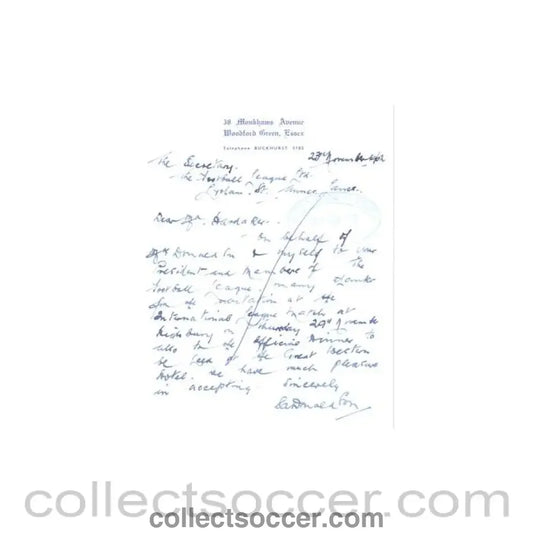 38 Monkhams Avenue
Woodford Green, Essex
Telephone BUCKHURST
The Secretary.
The Football League Ltd.
Lytham St.
Dear Mr. Hardaker
On behalf of
Mrs Donaldson & myself to your
President and Members of The
Football League many thanks
for the Invitation at the
International League Match at
Highbury on Thursday 29th November
also to the Official Dinner to
be held at the Great Western
Hotel. We have much pleasure
in accepting
Sincerely
collectsoccer.com
collectsoccer.com